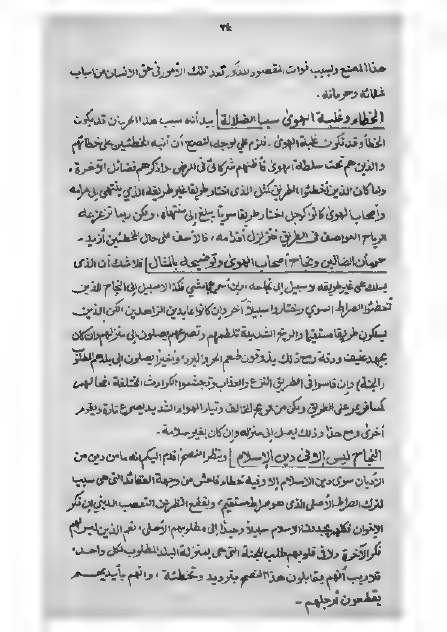 ٣٤
هذا المصنع ويسبب فوات المقصود المذكور تعد تلك الأمور في حق الانسان من اسباب
خطائه وحرمانه .
الخطاء وغلبة الهوى سببا الضلالة بيد أنه سبب هذا الحرمان قد يكون
الخطأ وقد تكون غلبة الهوى . فلزم علي لوجه النصح أن أنبه المخطئين على خطائهم
والذين هم تحت سلطة الهوى فأنهم شركائي في المرض وأذكرهم فضائل الآخرة .
ولما كان الذين يخطئوا الطريق كمثل الذى اختار طريقا غير طريقه الذي ينتهى إلى مرامه
وأصحاب الهوى كانوا كرجل اختار طريقا سويا يبلغ إلى منتهاه ، ولكن ربما تزعزعه
الرياح العواصف في الطريق فتزلزل أقدامه ، فالأسف على حال المخطئين أزيد .
حرمان الضالين ونجاح أصحاب الهوى وتوضيحه بالمثال فلا شك أن الذى
يسلك على غير طريقه لا سبيل إلى نجاحه وإن أسرع في المشي فكذا لا سبيل إلى النجاح للذين
تخطئوا الصراط السوي ويختاروا سبيلاً آخر وإن كانوا عابدين الزاهدين لكن الذين
يسلكون طريقا مستقيما والريح الشديدة تلطمهم وتصرعهم يصلون إلى منزلهم وإن كان
بجهد عنيف ودقة ومع ذلك يذوقون طعم الحر والبرد وأخيرا يصلون إلى بلدهم المطلوب
(الجنة) وإن قاسوا فى الطريق الفزع والعذاب وتجشموا الحوادث المختلفة مثالهم
كمسافر يمر على الطريق ولكن من قويم المخالف وتيار الهواء الشديد يصرع تارة ويقوم
أخرى ومع هذا وذلك يصل إلى منزله وإن كان بغير سلامة .
النجاح ليس إلا فى دين الإسلام وبنظر النصح أقدم اليكم أنه ما من دين من
الأديان سوى دين الإسلام إلا وفيه خطاء فاحش من وجهة العقائد التى هى سبب
لترك الصراط الأصلى الذى هو صراط مستقيم . وبقطع النظر عن التعصب الدينى إن فكر
الإخوان فكلهم يجد هذا الاسلام سبيلا وحيدا إلى مطلوبهم الأصلى ، نعم الذين ليس لهم
فكر الآخرة ولا في قلوبهم طلب الجنة التى هى بمنزلة البلد المطلوب لكل واحد ،
فلا ريب أنهم يقابلون هذا النصح بترديد وتخطئة ، وانهم بأيديهم
يقطعون أرجلهم .